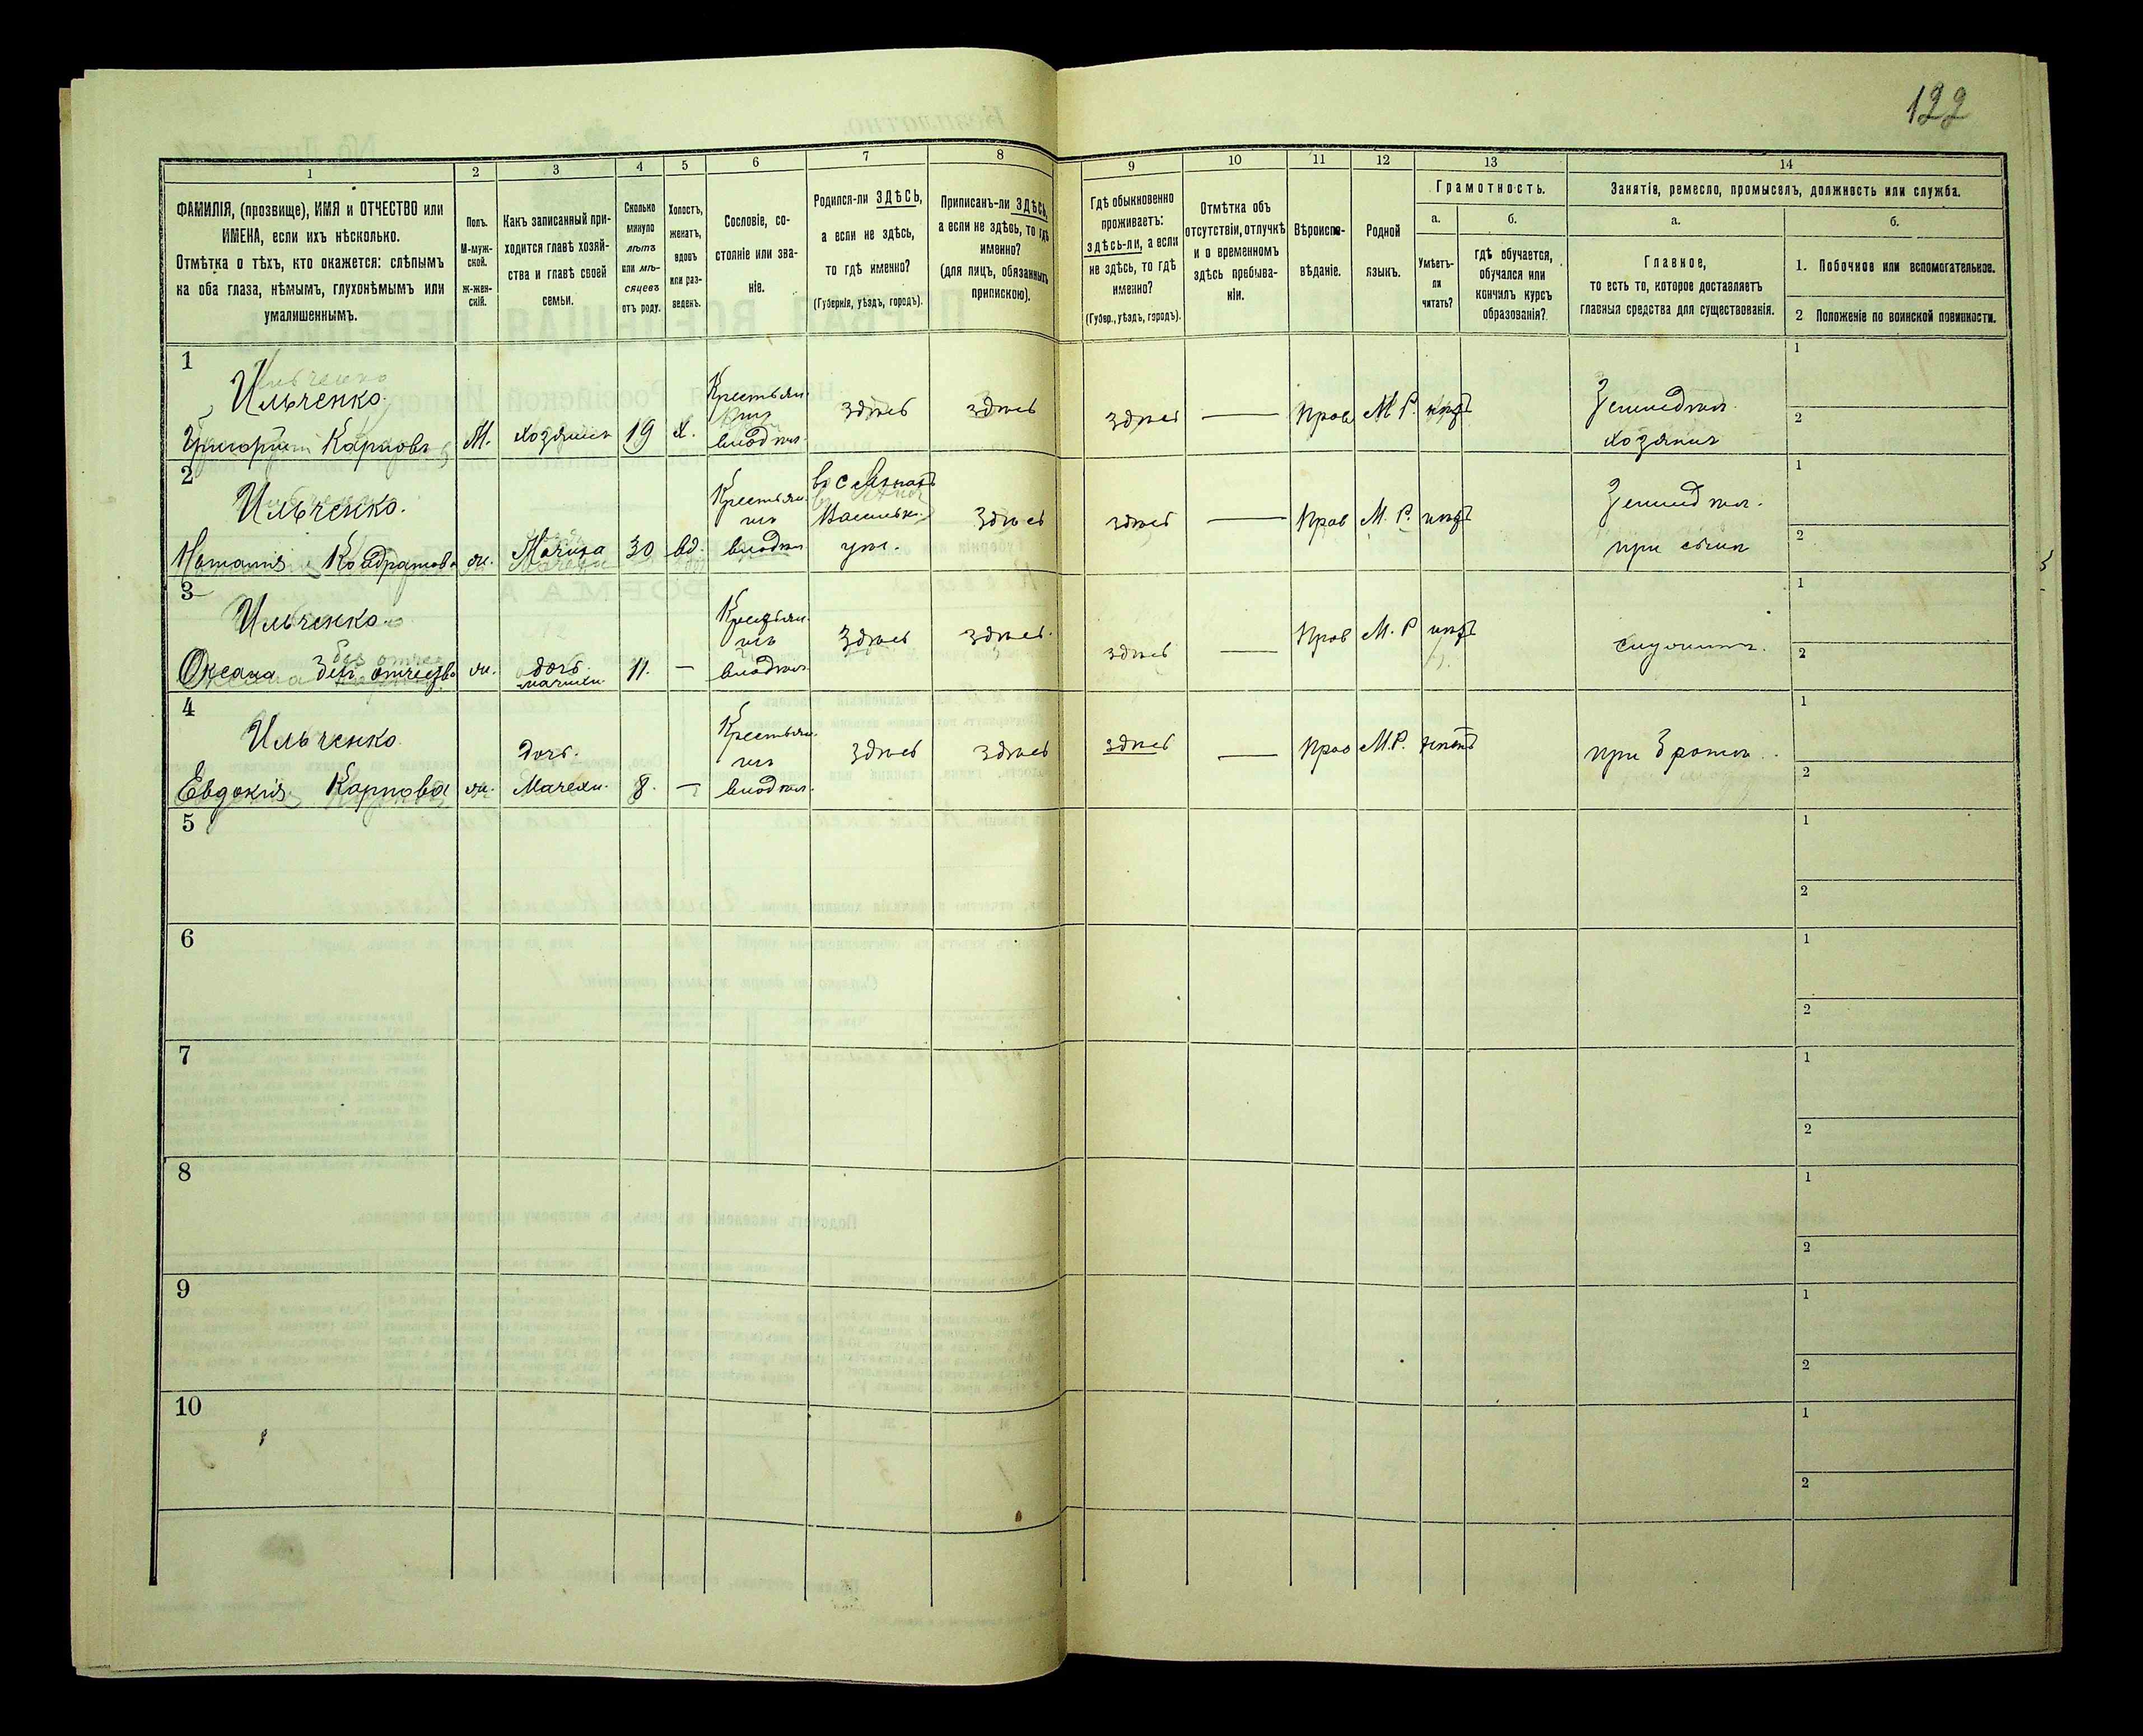 122
1 2 3 4 5 6 7 8 9 10 11 12 13 14
ФАМИЛІЯ, (прозвище), ИМЯ и ОТЧЕСТВО или
ИМЕНА, если ихъ нѣсколько.
Отмѣтка о тѣхъ, кто окажется: слѣпымъ
на оба глаза, нѣмымъ, глухонѣмымъ или
умалишеннымъ.
Полъ.
М-муж-
ской.
Ж-жен-
скій.
Какъ записанный при-
ходится главѣ хозяй-
ства и главѣ своей
семьи.
Сколько
минуло
лѣтъ
или мѣ-
сяцевъ
отъ роду.
Холостъ,
женатъ,
вдовъ
или раз-
веденъ.
Сословіе, со-
стояніе или зва-
ніе.
Родился-ли ЗДѢСЬ,
а если не здѣсь,
то гдѣ именно?
(Губернія, уѣздъ, городъ).
Приписанъ-ли ЗДѢСЬ,
а если не здѣсь, то гдѣ
именно?
(для лицъ, обязанныхъ
припискою).
Гдѣ обыкновенно
проживаетъ:
здѣсь-ли, а если
не здѣсь, то гдѣ
именно?
(Губер., уѣздъ, городъ).
Отмѣтка объ
отсутствіи, отлучкѣ
и о временномъ
здѣсь пребыва-
ніи.
Вѣроиспо-
вѣданіе.
Родной
языкъ.
Грамотность.
а.
Умѣетъ-
ли
читать?
б.
Гдѣ обучается,
обучался или
кончилъ курсъ
образованія?
Занятія, ремесло, промыселъ, должность или служба.
а.
Главное,
то есть то, которое доставляетъ
главныя средства для существованія.
б.
1. Побочное или вспомогательное.
2 Положеніе по воинской повинности.
1
Ильченко
Григорій Карповъ М. хозяинъ 19 х. Крестьян. здѣсь здѣсь здѣсь — Прав М. Р. хозяинъ
2
Ильченко.
Кондратова ж. Мачиха 30 вд. Крестьян. уѣз. здѣсь здѣсь — Прав М. Р. при сынѣ
3
Ильченко.
Оксана безъ отчества ж. дочь мачихи 11. — здѣсь здѣсь здѣсь — Прав М. Р
4
Ильченко
Евдокія Карпова ж. Дочь. Мачехи. 8. — здѣсь здѣсь здѣсь — Прав М.Р. при братѣ
5
6
7
8
9
10